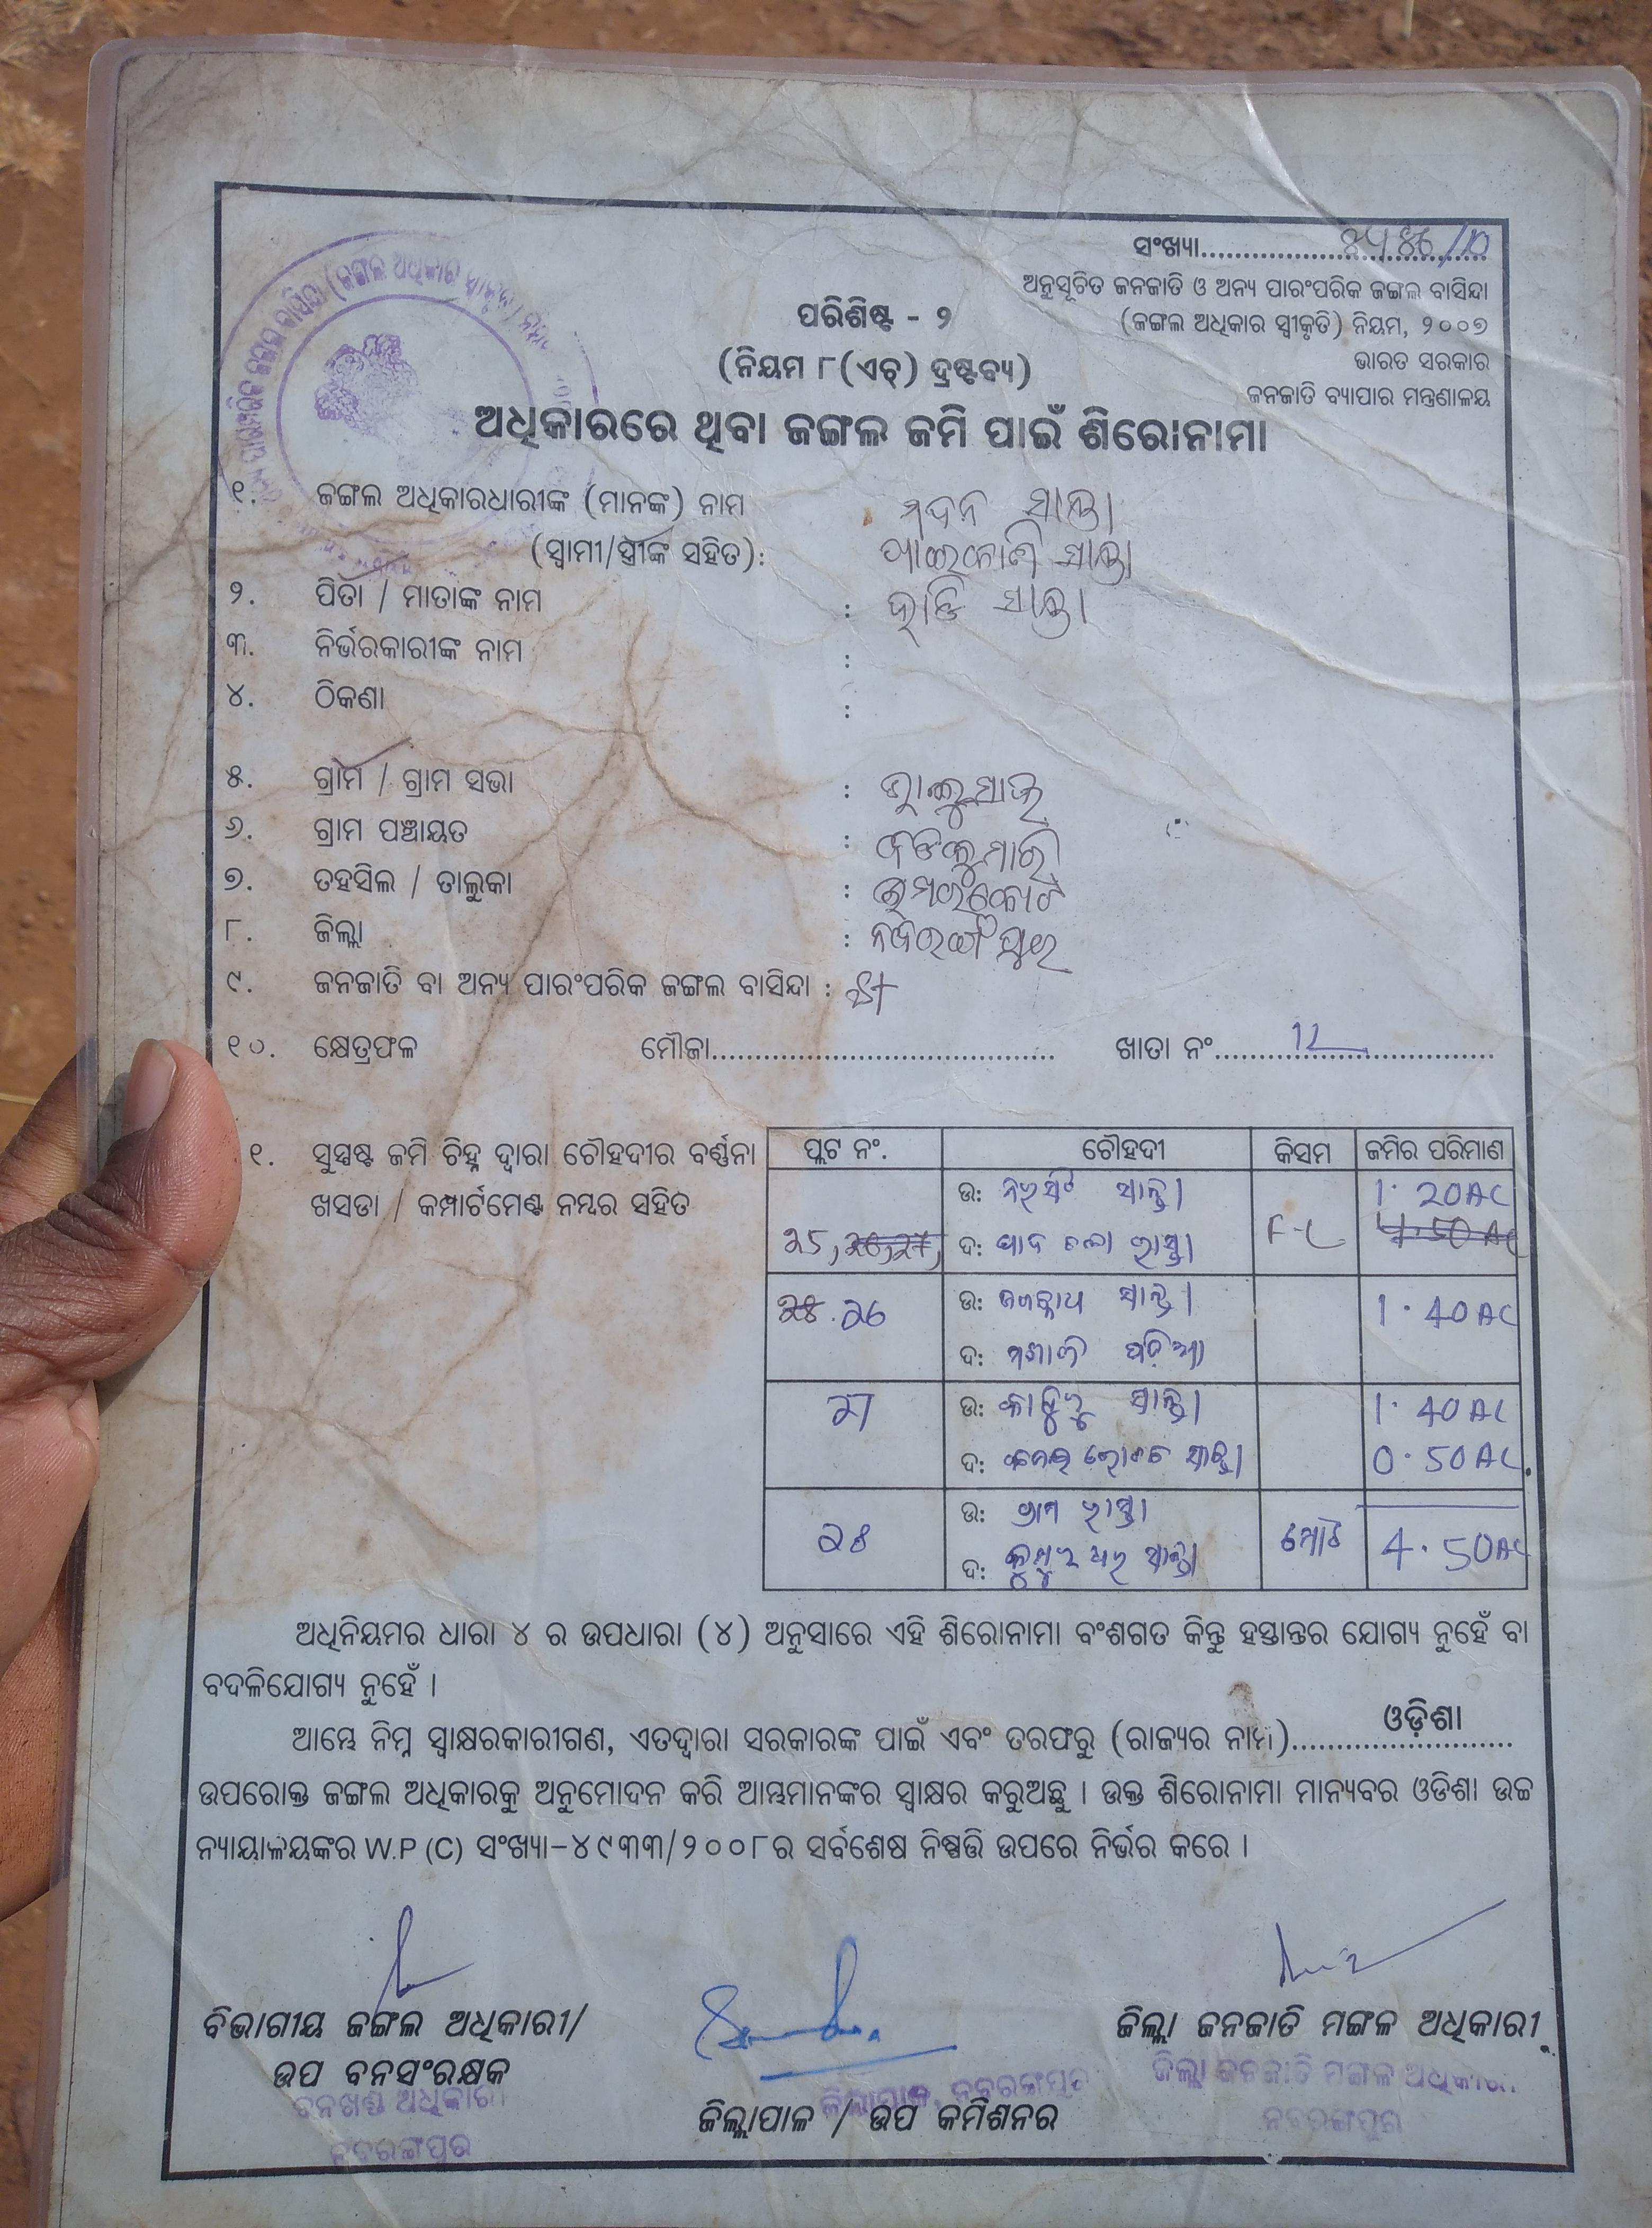 ସଂଖ୍ୟା
ଅନୁସୂଚିତ ଜନଜାତି ଓ ଅନ୍ୟ ପାରଂପରିକ ଜଙ୍ଗଲ ବାସିନ୍ଦା
(ଜଙ୍ଗଲ ଅଧିକାର ସ୍ୱୀକୃତି) ନିୟମ, ୨୦୦୭
ଭାରତ ସରକାର
ଜନଜାତି ବ୍ୟାପାର ମନ୍ତ୍ରଣାଳୟ
ପରିଶିଷ୍ଟ - ୨
(ନିୟମ ୮(ଏଚ୍) ଦ୍ରଷ୍ଟବ୍ୟ)
ଅଧିକାରରେ ଥିବା ଜଙ୍ଗଲ ଜମି ପାଇଁ ଶିରୋନାମା
୧. ଜଙ୍ଗଲ ଅଧିକାରଧାରୀଙ୍କ (ମାନଙ୍କ) ନାମ ମଦନ ସାନ୍ତା
(ସ୍ୱାମୀ/ସ୍ତ୍ରୀଙ୍କ ସହିତ): ସାନ୍ତା
୨. ପିତା / ମାତାଙ୍କ ନାମ : ସାନ୍ତା
୩. ନିର୍ଭରକାରୀଙ୍କ ନାମ :
୪. ଠିକଣା :
୫. ଗ୍ରାମ / ଗ୍ରାମ ସଭା :
୬. ଗ୍ରାମ ପଞ୍ଚାୟତ :
୭. ତହସିଲ / ତାଲୁକା : ଉମରକୋଟ
୮. ଜିଲ୍ଲା : ନବରଙ୍ଗପୁର
୯. ଜନଜାତି ବା ଅନ୍ୟ ପାରଂପରିକ ଜଙ୍ଗଲ ବାସିନ୍ଦା : ST
୧୦. କ୍ଷେତ୍ରଫଳ ମୌଜା ଖାତା ନଂ 12
୧. ସୁସ୍ପଷ୍ଟ ଜମି ଚିହ୍ନ ଦ୍ୱାରା ଚୌହଦୀର ବର୍ଣ୍ଣନା
ଖସଡା / କମ୍ପାର୍ଟମେଣ୍ଟ ନମ୍ବର ସହିତ
ପ୍ଲଟ ନଂ. ଚୌହଦୀ କିସମ ଜମିର ପରିମାଣ
ଉ: ସାନ୍ତା 1.20AC
25, ଦ: ପାଦ ଚଲା ରାସ୍ତା F-L 4.50 AC
ଉ: ଜଗନ୍ନାଥ ସାନ୍ତା
26 1.40AC
ଦ: ମଶାଣି ପଡିଆ
27 ଉ: ସାନ୍ତା 1.40AC
ଦ: ସାନ୍ତା 0.50AC
ଉ: ଗ୍ରାମ ରାସ୍ତା
28 ମୋଟ 4.50AC
ଦ: ସାନ୍ତା
ଅଧିନିୟମର ଧାରା ୪ ର ଉପଧାରା (୪) ଅନୁସାରେ ଏହି ଶିରୋନାମା ବଂଶଗତ କିନ୍ତୁ ହସ୍ତାନ୍ତର ଯୋଗ୍ୟ ନୁହେଁ ବା
ବଦଳିଯୋଗ୍ୟ ନୁହେଁ ।
ଆମ୍ଭେ ନିମ୍ନ ସ୍ୱାକ୍ଷରକାରୀଗଣ, ଏତଦ୍ୱାରା ସରକାରଙ୍କ ପାଇଁ ଏବଂ ତରଫରୁ (ରାଜ୍ୟର ନାମ) ଓଡ଼ିଶା
ଉପରୋକ୍ତ ଜଙ୍ଗଲ ଅଧିକାରକୁ ଅନୁମୋଦନ କରି ଆମ୍ଭମାନଙ୍କର ସ୍ୱାକ୍ଷର କରୁଅଛୁ । ଉକ୍ତ ଶିରୋନାମା ମାନ୍ୟବର ଓଡିଶା ଉଚ୍ଚ
ନ୍ୟାୟାଳୟଙ୍କର W.P (C) ସଂଖ୍ୟା-୪୯୩୩/୨୦୦୮ର ସର୍ବଶେଷ ନିଷ୍ପତ୍ତି ଉପରେ ନିର୍ଭର କରେ ।
ବିଭାଗୀୟ ଜଙ୍ଗଲ ଅଧିକାରୀ/
ଉପ ବନସଂରକ୍ଷକ
ବନଖଣ୍ଡ ଅଧିକାରୀ
ନବରଙ୍ଗପୁର
ଜିଲ୍ଲାପାଳ, ନବରଙ୍ଗପୁର
ଜିଲ୍ଲାପାଳ / ଉପ କମିଶନର
ଜିଲ୍ଲା ଜନଜାତି ମଙ୍ଗଳ ଅଧିକାରୀ
ଜିଲ୍ଲା ଜନଜାତି ମଙ୍ଗଳ ଅଧିକାରୀ
ନବରଙ୍ଗପୁର